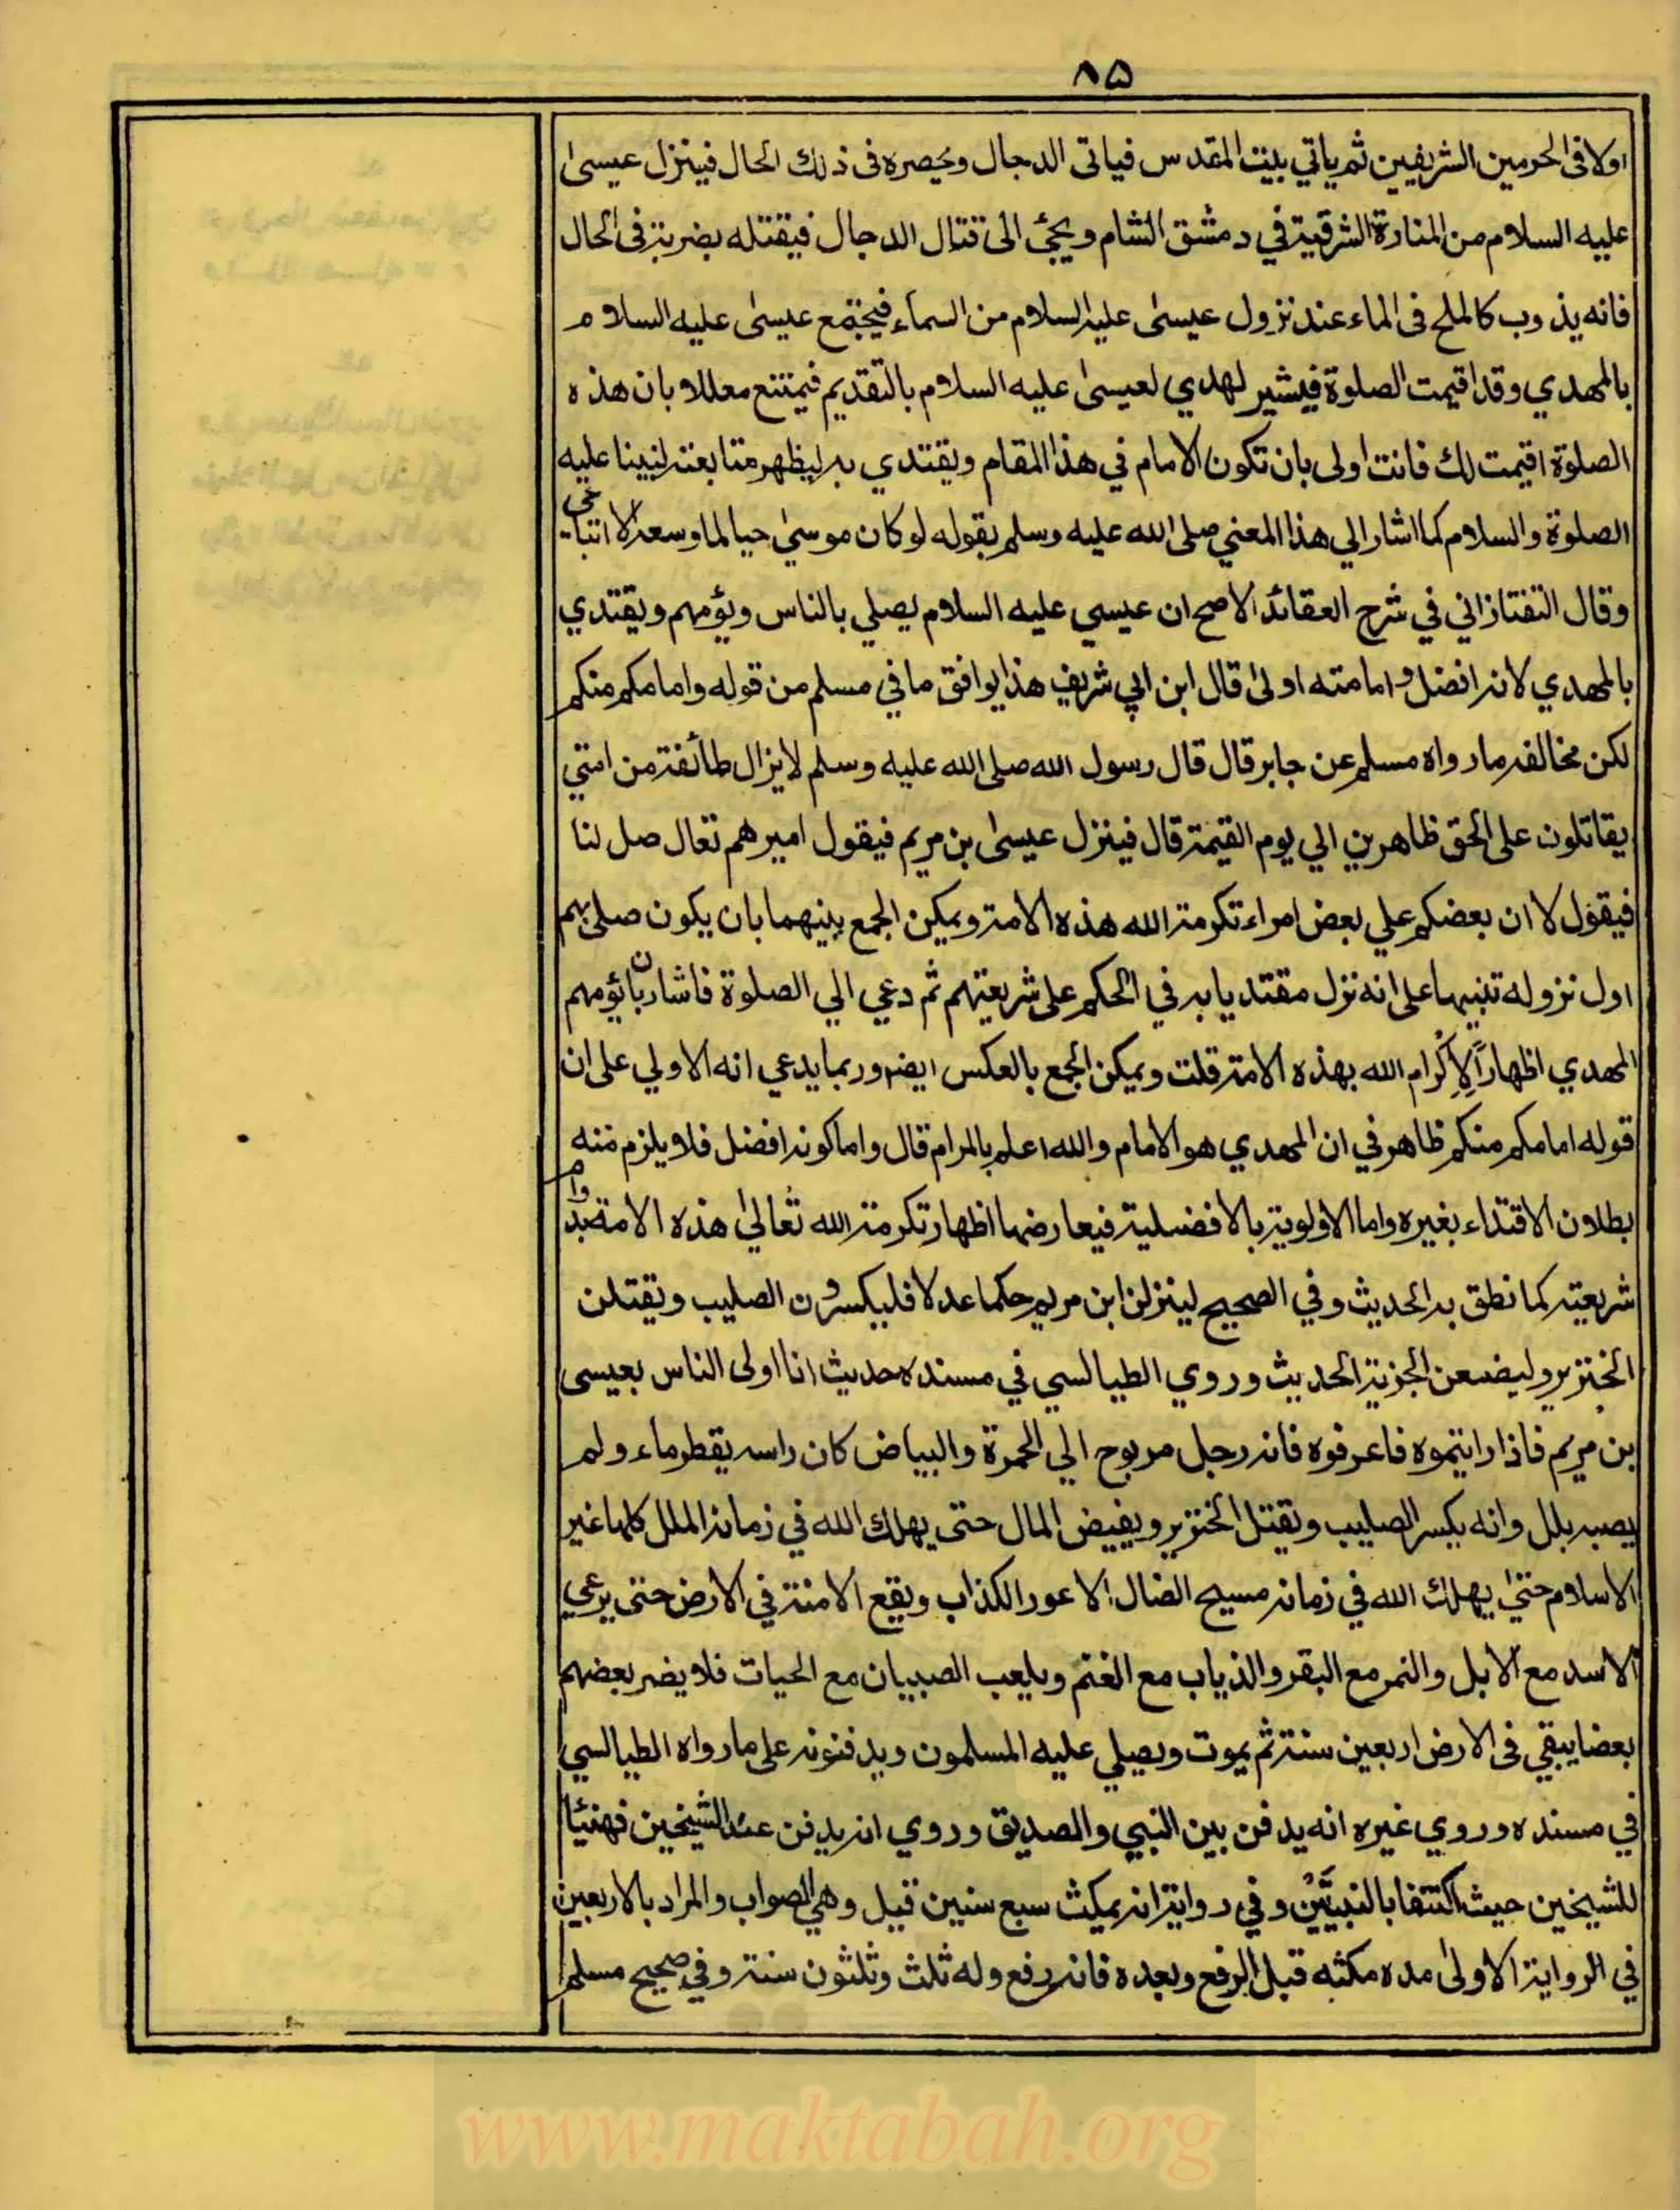 ٨٥
اولا فى الحرمين الشريفين ثم ياتي بيت المقدس فياتى الدجال ويحصره فى ذلك الحال فينزل عيسىٰ
عليه السلام من المنارة الشرقية في دمشق الشام ويجئ الى قتال الدجال فيقتله بضربة فى الحال
فانه يذوب كالملح فى الماء عند نزول عيسىٰ عليه السلام من السماء فيجتمع عيسىٰ عليه السلام
بالمهدي وقد اقيمت الصلوة فيشير لهدي لعيسىٰ عليه السلام بالتقديم فيمتنع معللا بان هذه
الصلوة اقيمت لك فانت اولى بان تكون الامام في هذا المقام ويقتدي به ليظهر متابعته لنبينا عليه
الصلوة والسلام كما اشار الي هذا المعني صلى الله عليه وسلم بقوله لو كان موسىٰ حيا لما وسعه الا اتباعي
وقال التفتازاني في شرح العقائد الاصح ان عيسي عليه السلام يصلي بالناس ويؤمهم ويقتدي
بالمهدي لانه افضل وامامته اولىٰ قال ابن ابي شريف هذا يوافق ما في مسلم من قوله وامامكم منكم
لكن مخالفه ما رواه مسلم عن جابر قال قال رسول الله صلى الله عليه وسلم لا يزال طائفة من امتي
يقاتلون على الحق ظاهرين الي يوم القيمة قال فينزل عيسىٰ بن مريم فيقول اميرهم تعال صل لنا
فيقول لا ان بعضكم علي بعض امراء تكرمة الله هذه الامة ويمكن الجمع بينهما بان يكون صلى بهم
اول نزوله تنبيها على انه نزل مقتديا به في الحكم على شريعتهم ثم دعي الي الصلوة فاشار بان يؤمهم
المهدي اظهاراً لاِكرام الله بهذه الامة قلت ويمكن الجمع بالعكس ايضا وربما يدعي انه الاولي على ان
قوله امامكم منكم ظاهر في ان المهدي هو الامام والله اعلم بالمرام قال واما كونه افضل فلا يلزم منه
بطلان الاقتداء بغيره واما الاولوية بالافضلية فيعارضها اظهار تكرمة الله تعالىٰ هذه الامة بدوام
شريعته كما نطق به الحديث وفي الصحيح لينزلن ابن مريم حكما عدلا فليكسرون الصليب ويقتلن
الخنزير وليضعن الجزية الحديث وروي الطيالسي في مسنده حديث انا اولى الناس بعيسى
بن مريم فاذا رايتموه فاعرفوه فانه رجل مربوح الي الحمرة والبياض كان راسه يقطر ماء ولم
يصبه بلل وانه يكسر الصليب ويقتل الخنزير ويفيض المال حتى يهلك الله في زمانه الملل كلها غير
الاسلام حتىٰ يهلك الله في زمانه مسيح الضال الاعور الكذاب ويقع الامنة في الارض حتى يرعي
الاسد مع الابل والنمر مع البقر والذياب مع الغنم ويلعب الصبيان مع الحيات فلا يضر بعضهم
بعضا يبقي فى الارض اربعين سنة ثم يموت ويصلي عليه المسلمون ويدفنونه على ما رواه الطيالسي
في مسنده وروي غيره انه يدفن بين النبي والصديق وروي انه يدفن عند الشيخين فهنيئا
للشيخين حيث اكتنفا بالنبيَّينْ وفي رواية انه يمكث سبع سنين قيل وهي الصواب والمراد بالاربعين
في الرواية الاولىٰ مده مكثه قبل الرفع وبعده فانه رفع وله ثلث وثلثون سنة وفي صحيح مسلم
www.maktabah.org